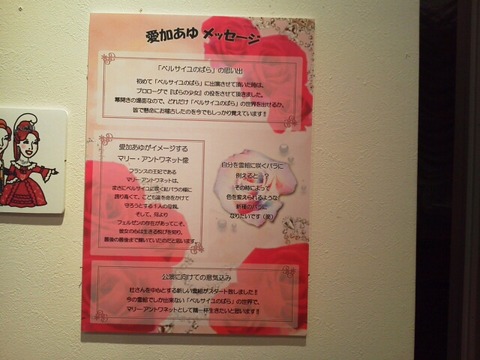 愛加あゆ メッセージ
「ベルサイユのばら」の思い出
初めて「ベルサイユのばら」に出演させて頂いた時は、
プロローグで『ばらの少女』の役をさせて頂きました。
幕開きの場面なので、どれだけ「ベルサイユのばら」の世界を出せるか、
皆で懸命にお稽古したのを今でもしっかり覚えています!!
愛加あゆがイメージする
マリー・アントワネット像
フランスの王妃である
マリー・アントワネットは、
まさにベルサイユに咲く紅バラの様に
誇り高くて、こども達を命をかけて
守ろうとする千人の母親。
そして、何より
フェルゼンの存在があってこそ、
彼女の心は生きる悦びを知り、
最後の最後まで輝いていたのだと思います。
自分を雪組に咲くバラに
例えると…?
その時によって
色を変えられるような
新種のバラに
なりたいです(笑)
公演に向けての意気込み
壮さんを中心とする新しい雪組がスタート致しました!!
今の雪組でしか出来ない「ベルサイユのばら」の世界で、
マリー・アントワネットとして精一杯生きたいと思います!!